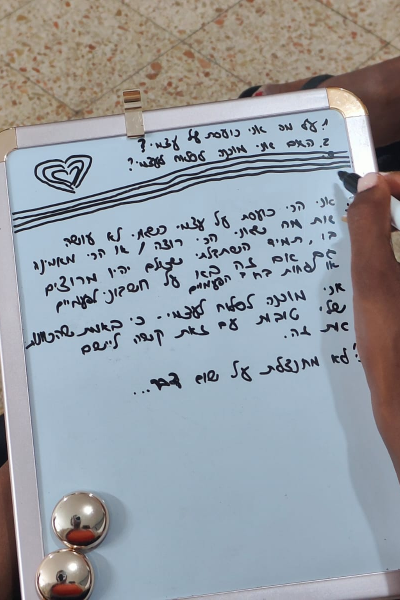 1. על מה אני כועסת על עצמי?
2. האם אני מוכנה לסלוח לעצמי?
אני הכי כועסת על עצמי כשאני לא עושה
את מה שאני הכי רוצה / או הכי מאמינה
בו, תמיד השתדלתי שכולם יהיו מרוצים
גם אם זה בא על חשבוני לפעמים
או לפחות ברוב הפעמים
אני מוכנה לסלוח לעצמי.. כי באמת
שלי טובות עם זאת קשה ליישם
את זה..
לא מתנצלת על שום דבר...